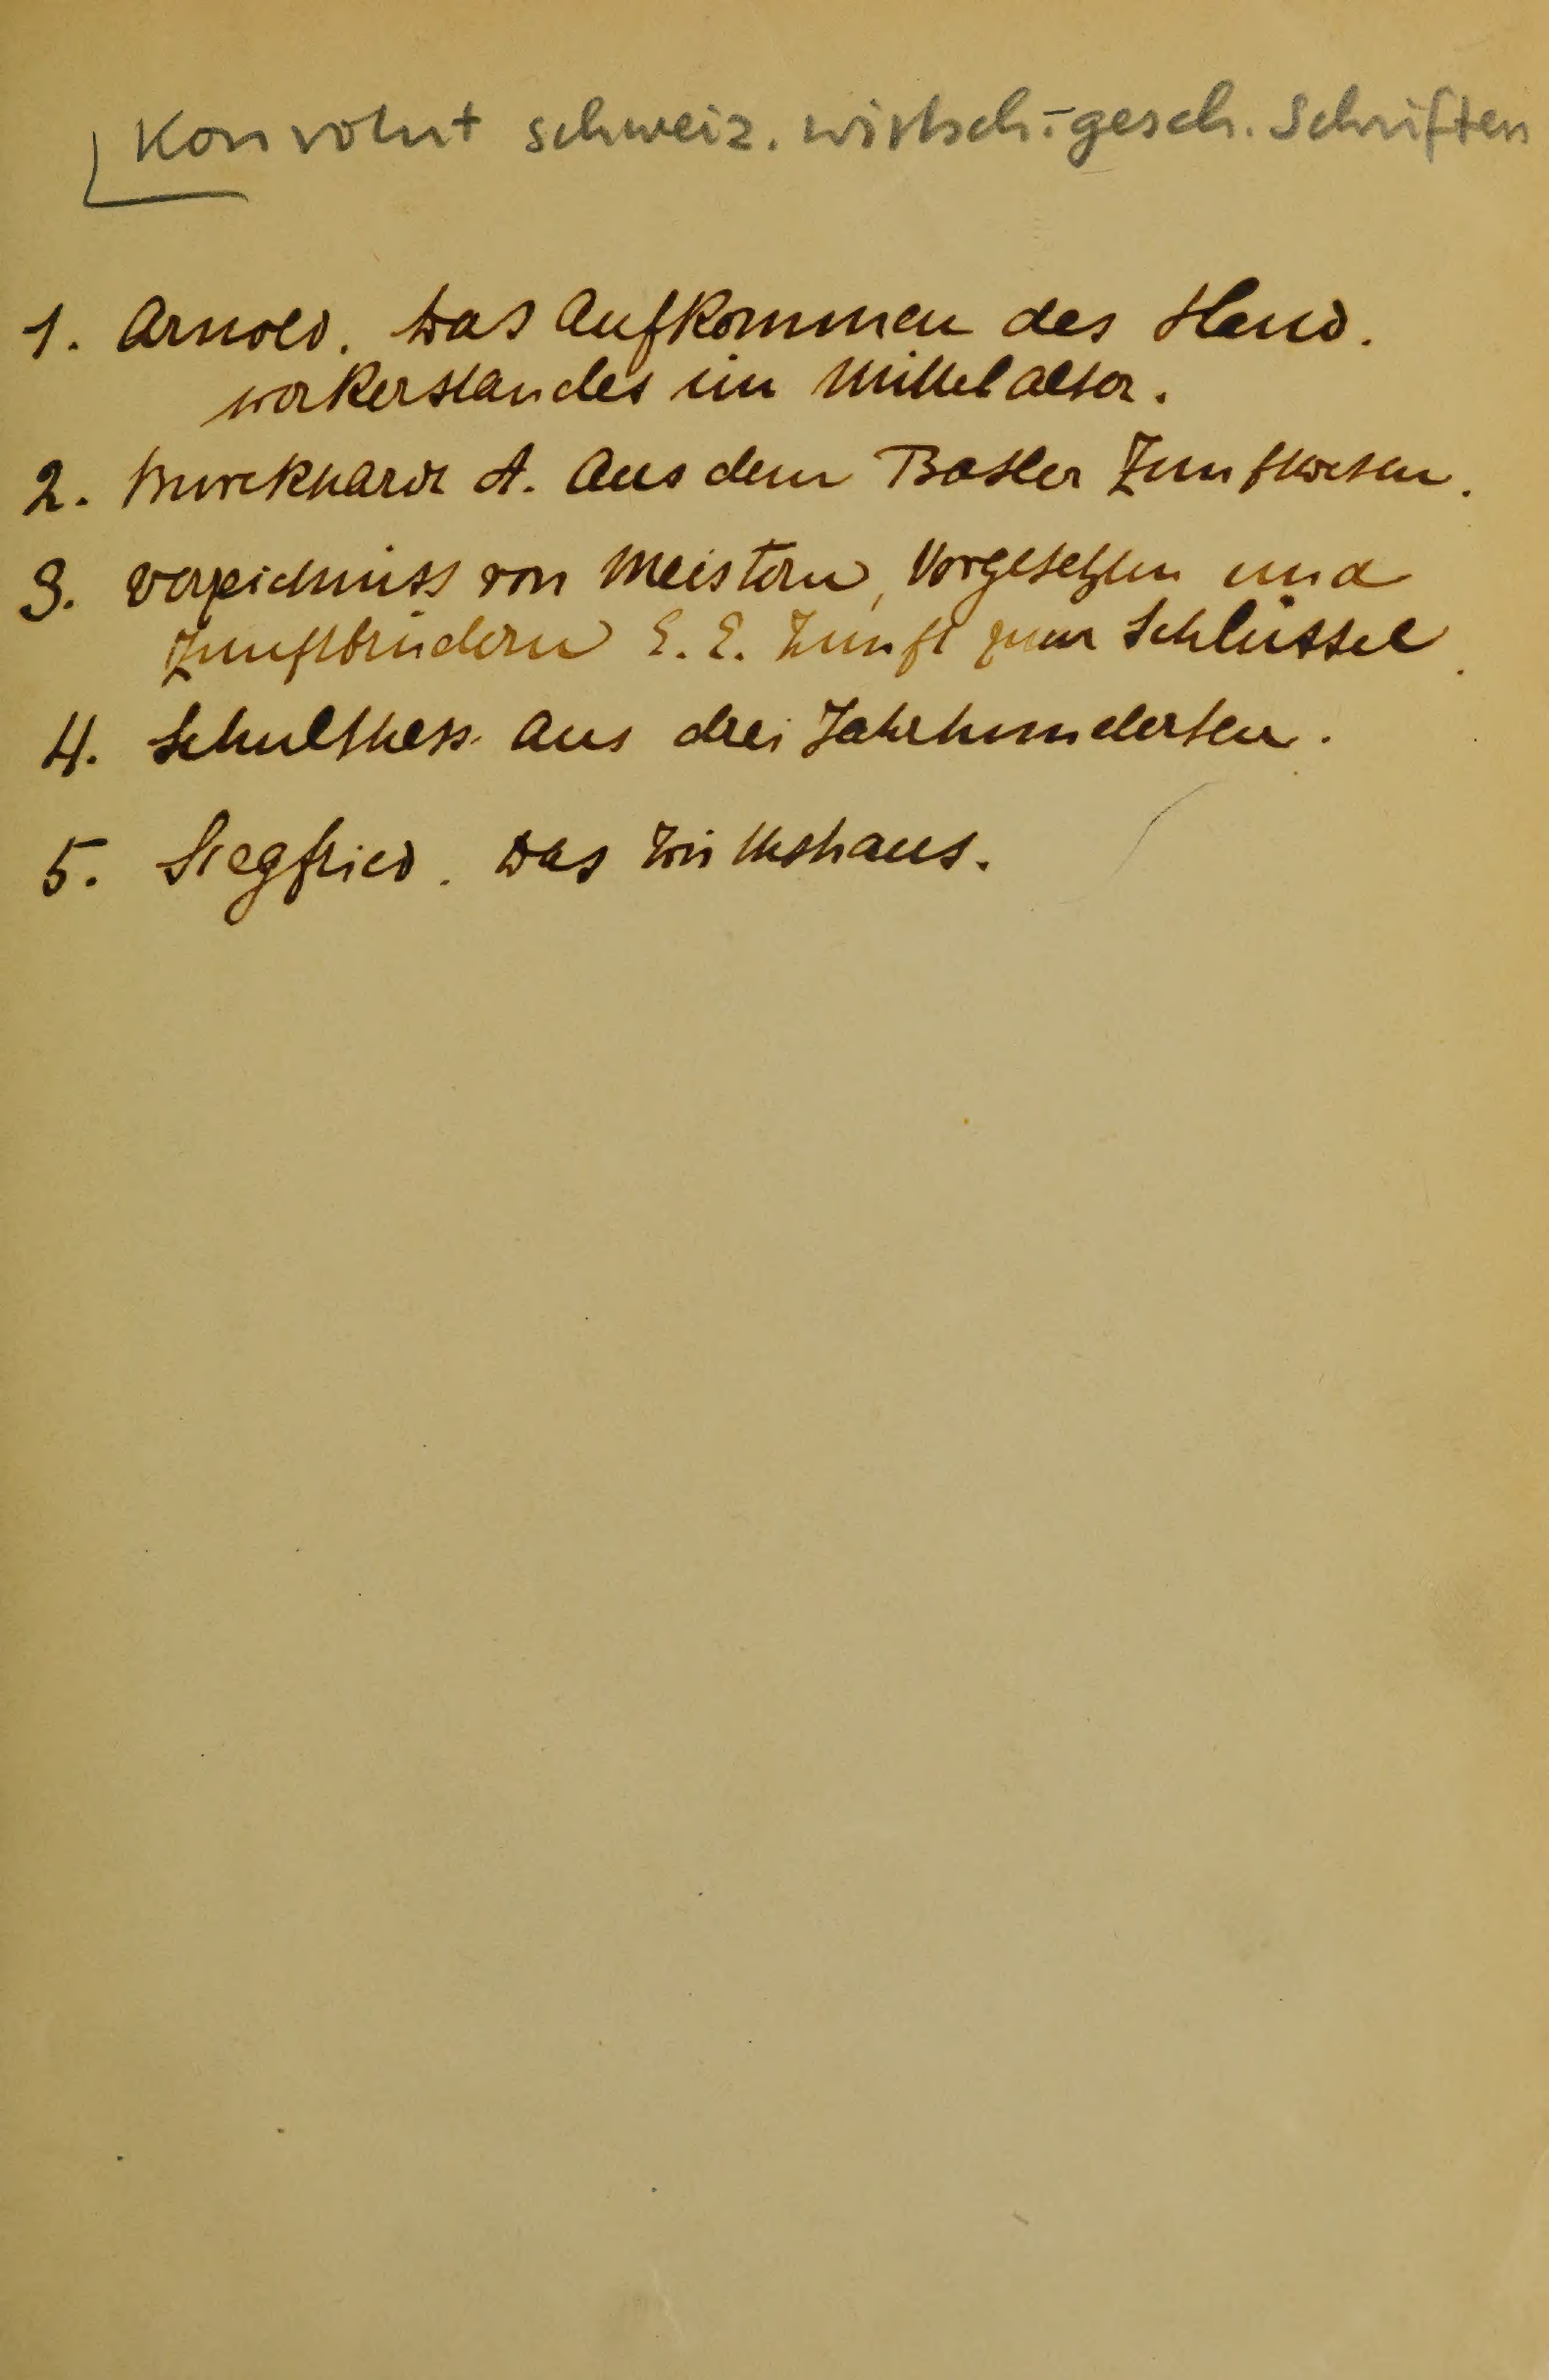 Konvolut schweiz. wirtsch.-gesch. Schriften
1. Arnold. Das Aufkommen des Hand.
werkerstandes im Mittelalter.
2. Burckhardt A. Aus dem Basler Zunftwesen.
3. Verzeichniss von Meistern, Vorgesetzten und
Zunftbrüdern E. E. Zunft zum Schlüssel.
4. Schulthess. Aus drei Jahrhunderten.
5. Siegfried. Das Wirthshaus.